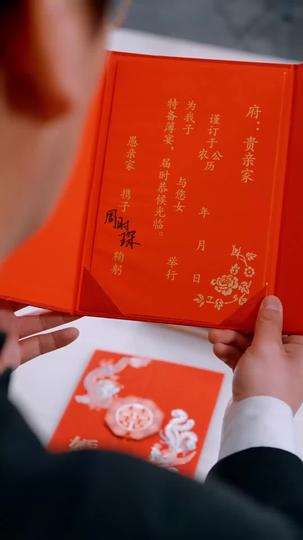 府：贵亲家
谨订于公历
农 年 月 日
为我子 与您女 举行
特备薄宴，届时恭候光临。
愚亲家 携子 周时琛 鞠躬